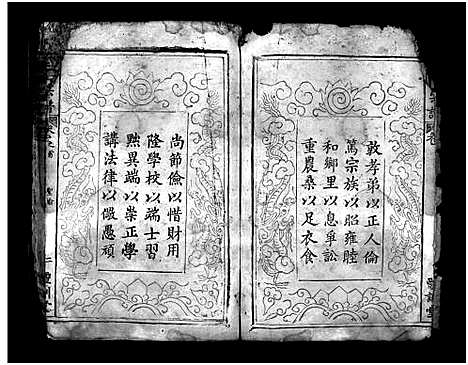 敦孝弟以正人倫
篤宗族以昭雍睦
和鄉里以息爭訟
重農桑以足衣食
尚節儉以惜財用
隆學校以端士習
黜異端以崇正學
講法律以儆愚頑